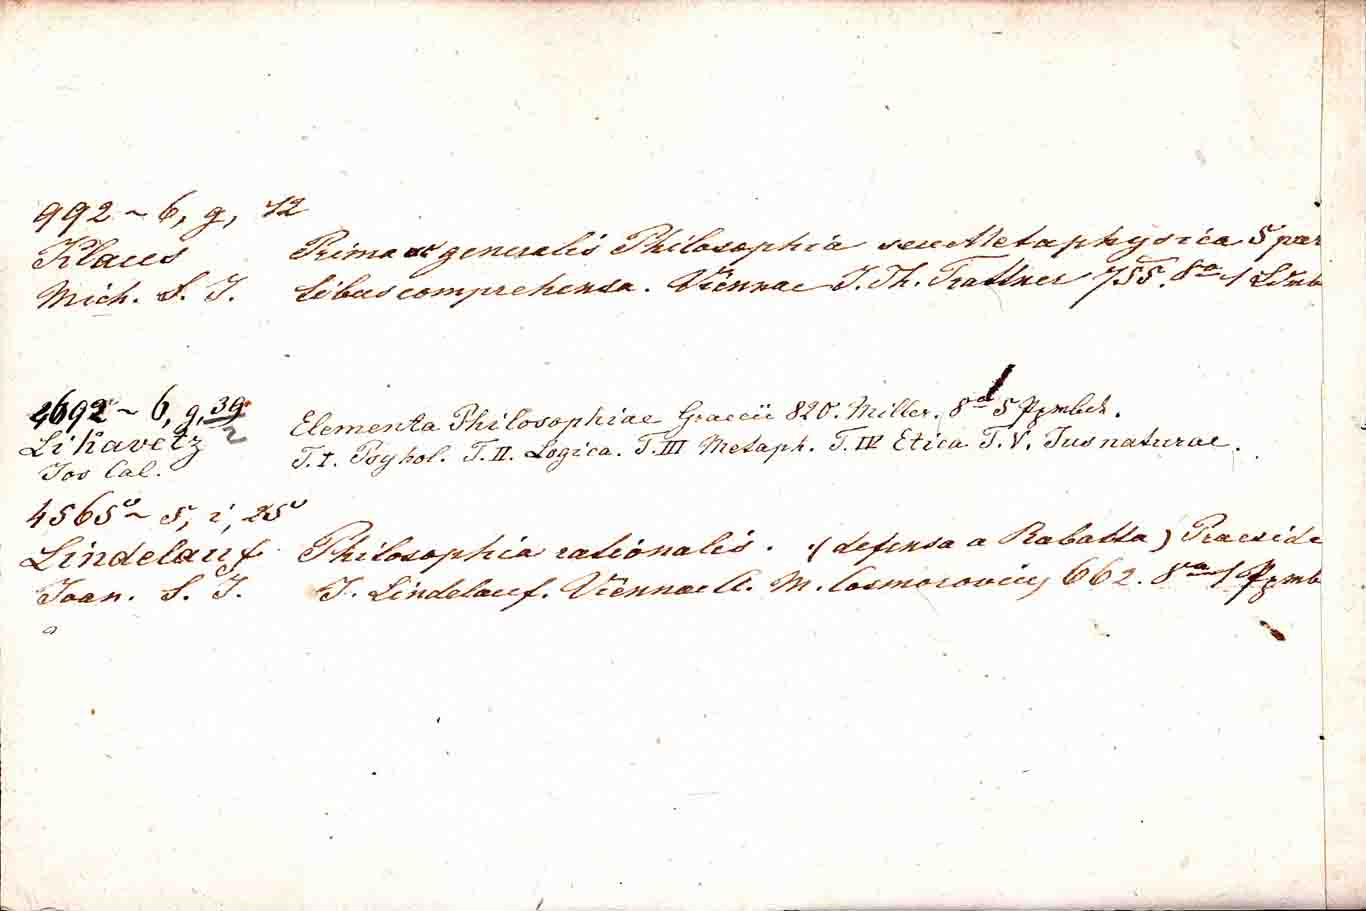 992 ~ 6, g, 12
Klaus Prima ac generalis Philosophia seu Metaphysica 5 par
Mich. S. J. tibus comprehensa. Viennae J. Th. Trattner 755. 8a 1 Ldrb
4692 ~ 6, g, 39/2
Likavetz Elementa Philosophiae Graecii 820. Miller. 8a 5 Ppmbch.
Jos Cal. T. I. Psyhol. T. II. Logica. T. III Metaph. T. IV Etica T. V. Jus naturae.
4565 ~ 5, i, 25
Lindelauf Philosophia rationalis. (defensa a Rabatta) Praeside
Joan. S. J. J. Lindelauf. Viennae M. Cosmorovius 662. 8a 1 Ppmb